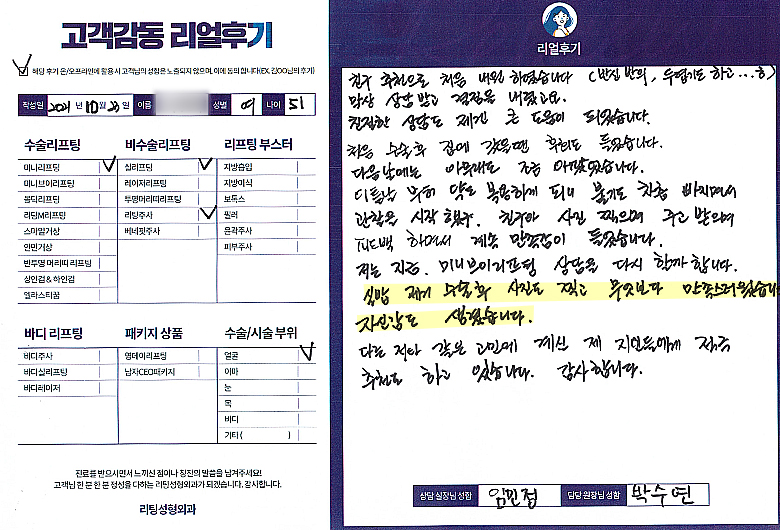 고객감동 리얼후기
해당 후기 온/오프라인에 활용 시 고객님의 성함은 노출되지 않으며, 이에 동의합니다(EX. 김OO님의 후기)
작성일 2021 년 10 월 21 일 이름 성별 여 나이 51
수술리프팅 비수술리프팅 리프팅 부스터
미니리프팅 실리프팅 지방흡입
미니브이리프팅 레이저리프팅 지방이식
볼디리프팅 투명머리띠리프팅 보톡스
리팅M리프팅 리팅주사 필러
스마일거상 베네핏주사 윤곽주사
안면거상 피부주사
반투명 머리띠 리프팅
상안검 & 하안검
엘라스티꿈
바디 리프팅 패키지 상품 수술/시술 부위
바디주사 영데이리프팅 얼굴
바디실리프팅 남자CEO패키지 이마
바디레이저 눈
목
바디
기타 ( )
진료를 받으시면서 느끼신 점이나 칭찬의 말씀을 남겨주세요!
고객님 한 분 한 분 정성을 다하는 리팅성형외과가 되겠습니다. 감사합니다.
리팅성형외과
리얼후기
친구 추천으로 처음 내원 하였습니다 (반신 반의, 무섭기도 하고...ㅎ)
막상 상담 받고 결정을 내렸고요.
친절한 상담도 제겐 큰 도움이 되었습니다.
처음 수술 후 집에 갔을땐 후회도 들었습니다.
다음날에는 아무래도 조금 아팠었습니다.
이틀날 부터 약도 복용하게 되니 붓기도 차츰 빠지면서
관찰을 시작했구. 친구와 사진 찍으며 주고 받으며
피드백 하면서 계속 만족감이 들었습니다.
저는 지금. 미니브이리프팅 상담을 다시 할까 합니다.
실밥 제거 수술후 사진도 찍고 무엇보다 만족스러웠습니다
자신감도 생겼습니다.
다른 적다 같은 고민에 계신 제 지인들에게 적극
추천도 하고 있습니다. 감사합니다.
상담 실장님 성함 임민정 담당 원장님 성함 박수연